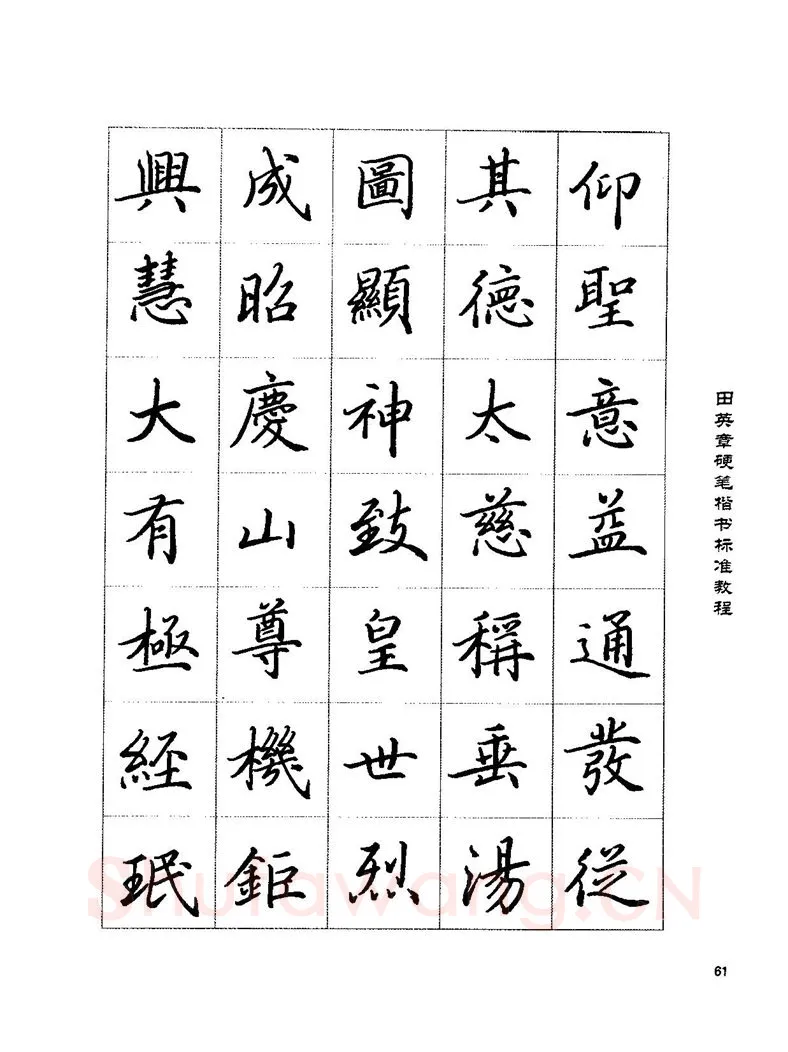 仰聖意益通發從
其德太慈稱垂湯
圖顯神致皇世烈
成昭慶山尊機鉅
興慧大有極經珉
田英章硬笔楷书标准教程
61
Shufawang.CN